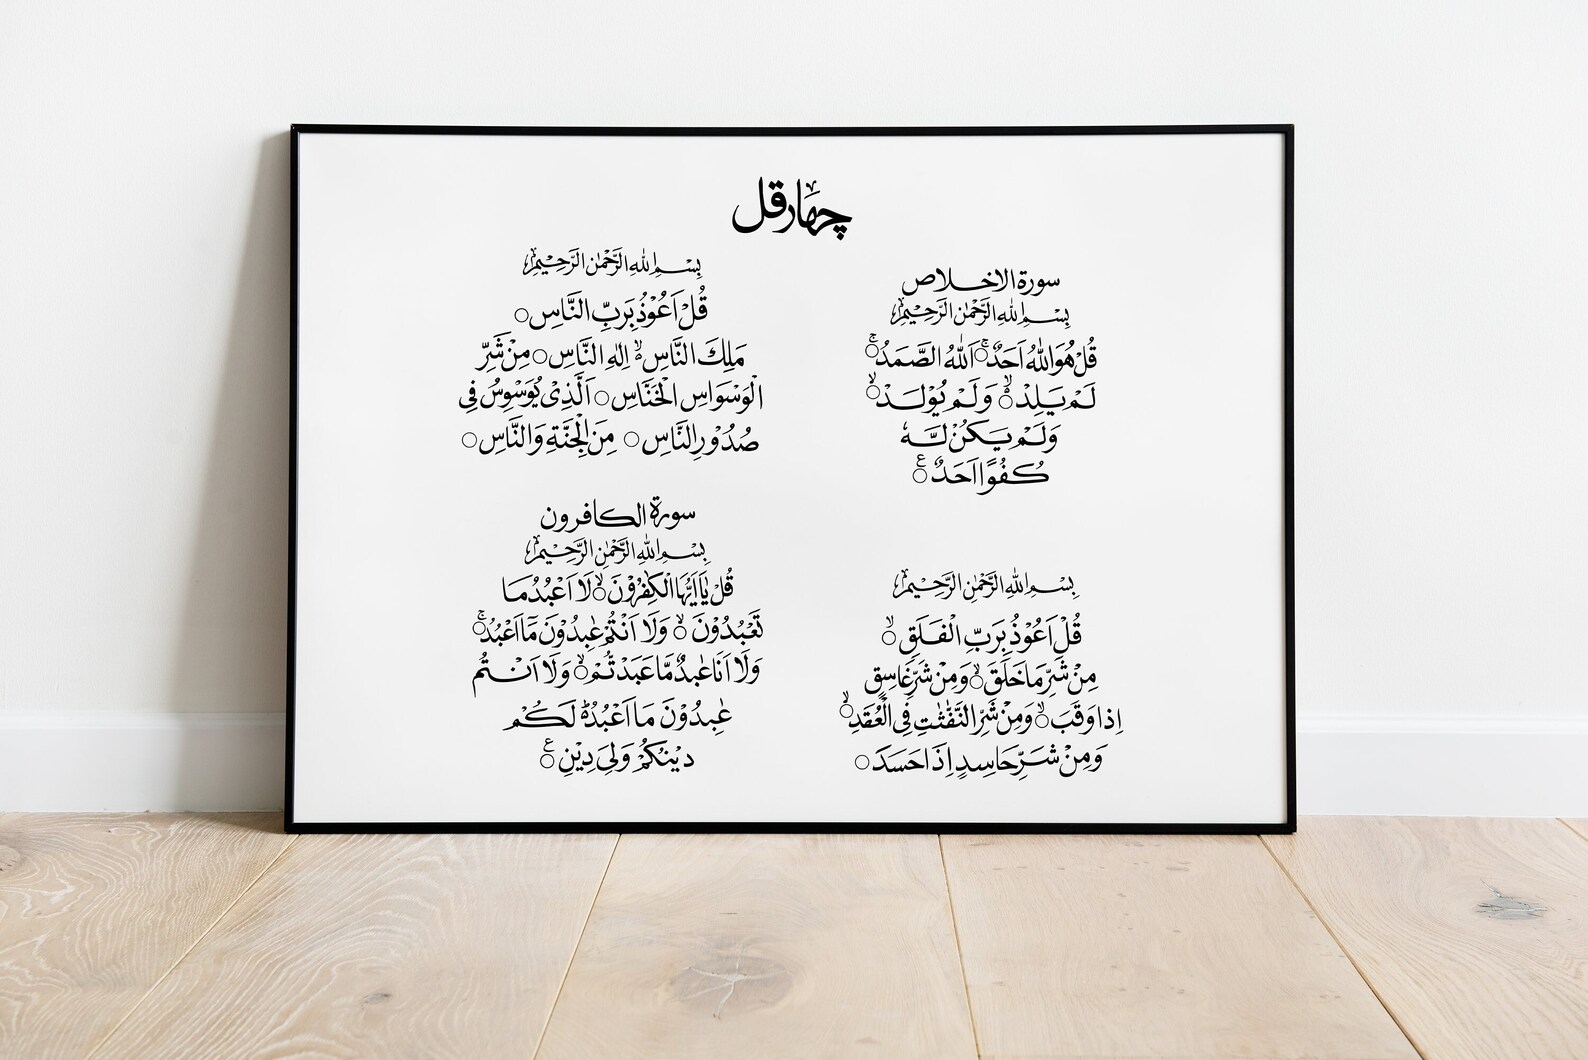 چهار قل
سورة الاخلاص
بِسْمِ اللهِ الرَّحْمٰنِ الرَّحِيْمِ
قُلْ هُوَ اللهُ اَحَدٌ ۚ○ اَللهُ الصَّمَدُ ۚ○
لَمْ يَلِدْ ۙ○ وَلَمْ يُوْلَدْ ۙ○
وَلَمْ يَكُنْ لَّهٗ
كُفُوًا اَحَدٌ ○ۧ
بِسْمِ اللهِ الرَّحْمٰنِ الرَّحِيْمِ
قُلْ اَعُوْذُ بِرَبِّ النَّاسِ ○
مَلِكِ النَّاسِ ۙ○ اِلٰهِ النَّاسِ ○ مِنْ شَرِّ
الْوَسْوَاسِ الْخَنَّاسِ ○ الَّذِىْ يُوَسْوِسُ فِى
صُدُوْرِ النَّاسِ ○ مِنَ الْجِنَّةِ وَالنَّاسِ ○
بِسْمِ اللهِ الرَّحْمٰنِ الرَّحِيْمِ
قُلْ اَعُوْذُ بِرَبِّ الْفَلَقِ ۙ○
مِنْ شَرِّ مَا خَلَقَ ۙ○ وَمِنْ شَرِّ غَاسِقٍ
اِذَا وَقَبَ ۙ○ وَمِنْ شَرِّ النَّفّٰثٰتِ فِى الْعُقَدِ ۙ○
وَمِنْ شَرِّ حَاسِدٍ اِذَا حَسَدَ ○
سورة الكافرون
بِسْمِ اللهِ الرَّحْمٰنِ الرَّحِيْمِ
قُلْ يٰاَيُّهَا الْكٰفِرُوْنَ ۙ○ لَا اَعْبُدُ مَا
تَعْبُدُوْنَ ۙ○ وَلَا اَنْتُمْ عٰبِدُوْنَ مَا اَعْبُدُ ۚ○
وَلَا اَنَا عَابِدٌ مَّا عَبَدْتُّمْ ۙ○ وَلَا اَنْتُمْ
عٰبِدُوْنَ مَا اَعْبُدُ ○ؕ لَكُمْ
دِيْنُكُمْ وَلِىَ دِيْنِ ○ۧ